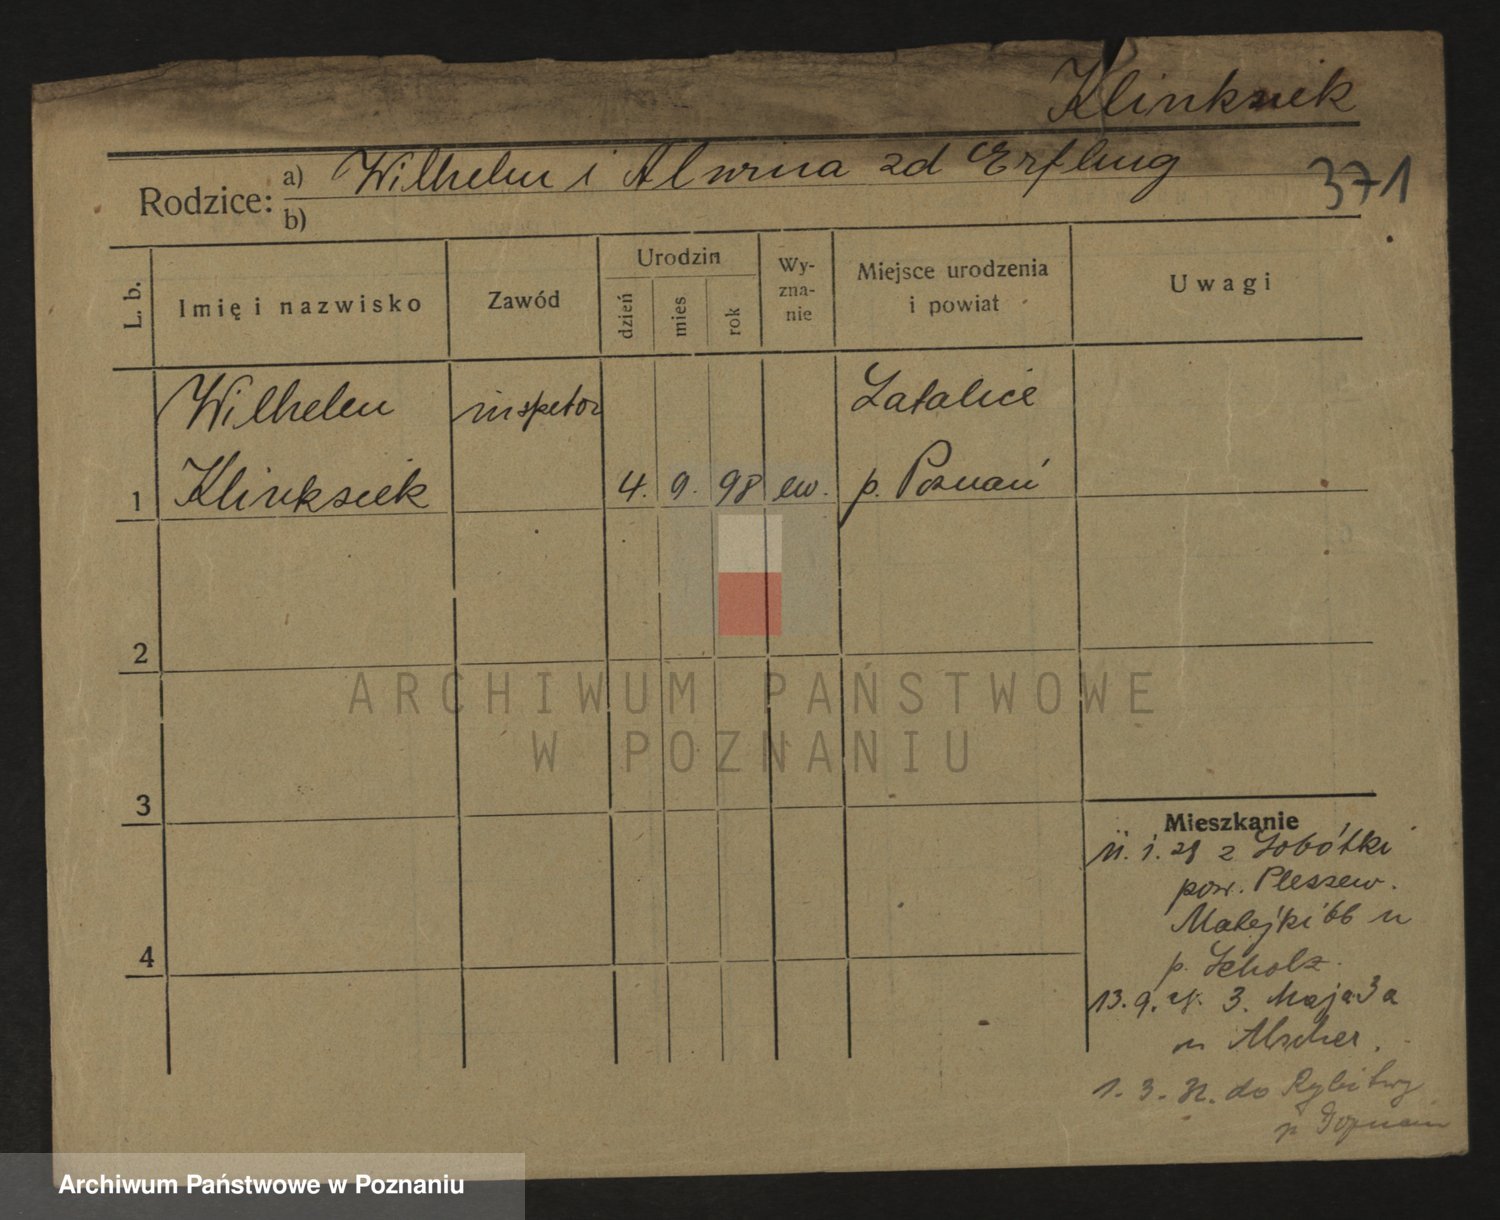 Klinksiek
Rodzice:
a) Wilhelm i Alwina zd Erfling
b)
371
L. b.
Imię i nazwisko
Zawód
Urodzin
dzień
mies
rok
Wy-
zna-
nie
Miejsce urodzenia
i powiat
Uwagi
Wilhelm inspektor Latalice
1 Klinksiek 4. 9. 98 ew. p. Poznań
2
ARCHIWUM PAŃSTWOWE
W POZNANIU
3
Mieszkanie
z Sobótki
pow. Pleszew.
4
Matejki 66 u
p. Scholz.
13. 9. 3. Maja 3a
u
1. 3. do Rybitwy
p.
Archiwum Państwowe w Poznaniu